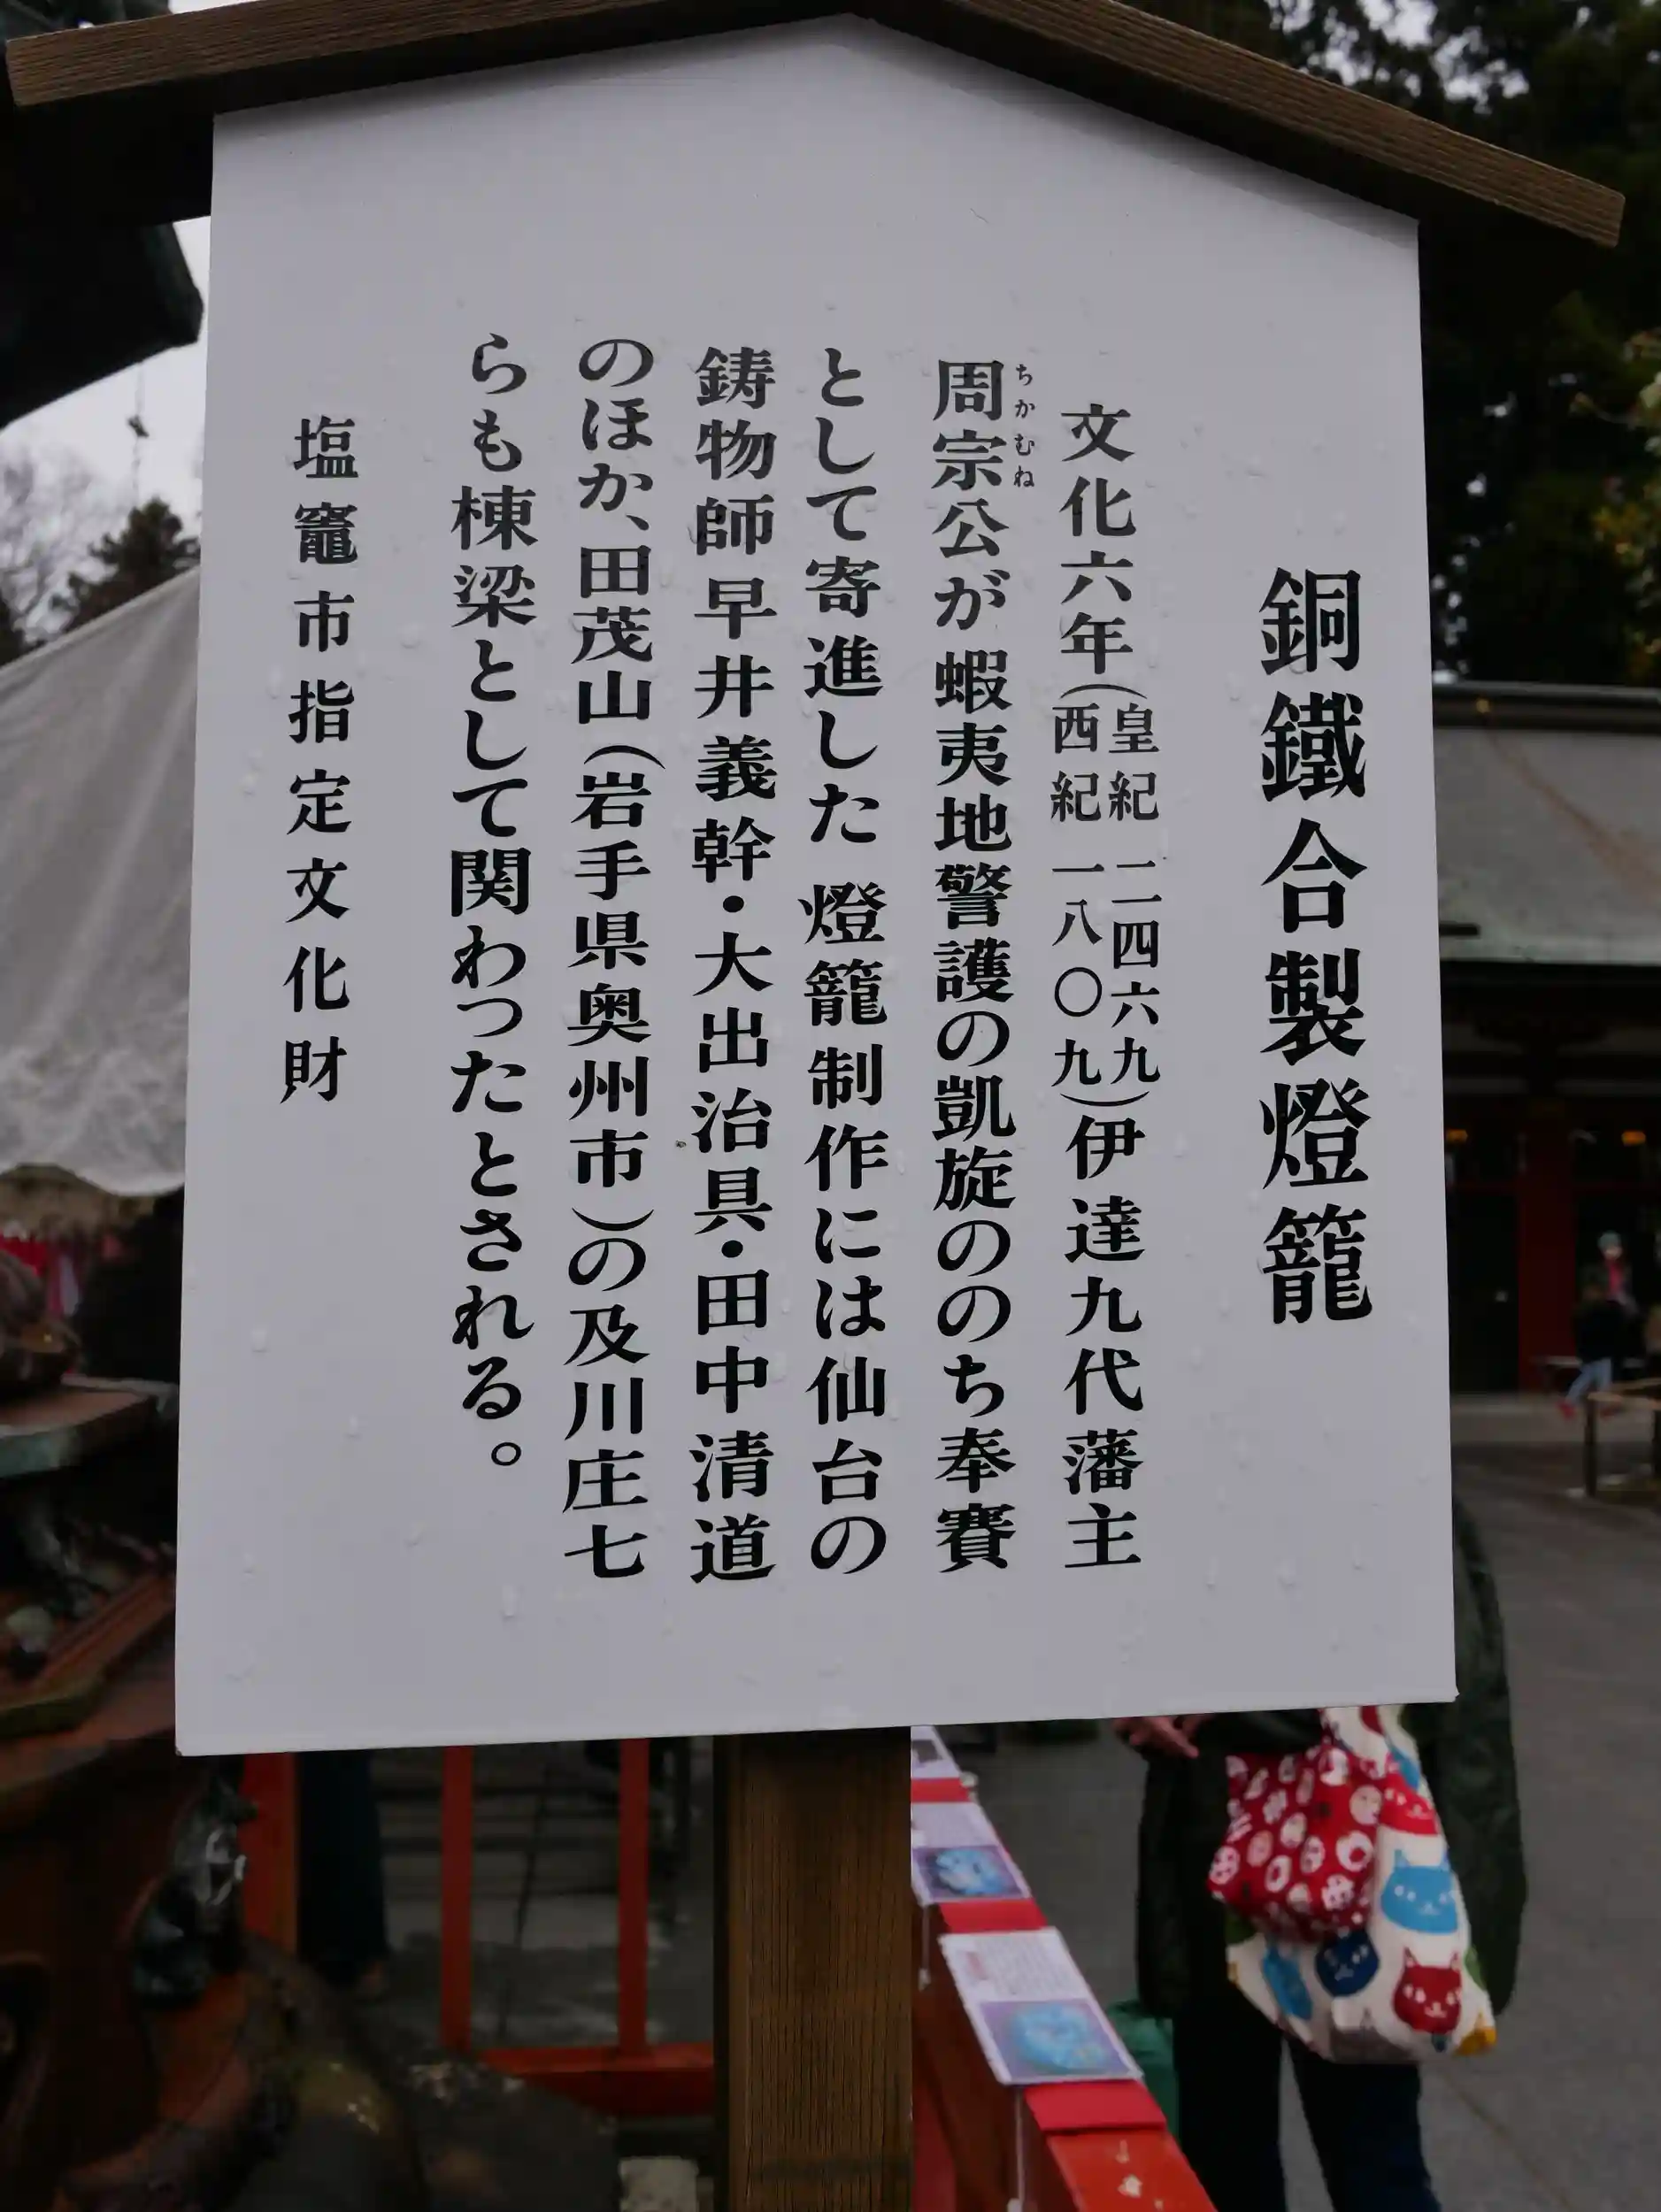 銅鐵合製燈籠
文化六年(皇紀 二四六九 西紀 一八〇九)伊達九代藩主
周宗公が蝦夷地警護の凱旋ののち奉賽
ちかむね
として寄進した 燈籠制作には仙台の
鋳物師早井義幹・大出治具・田中清道
のほか、田茂山(岩手県奥州市)の及川庄七
らも棟梁として関わったとされる。
塩竈市指定文化財